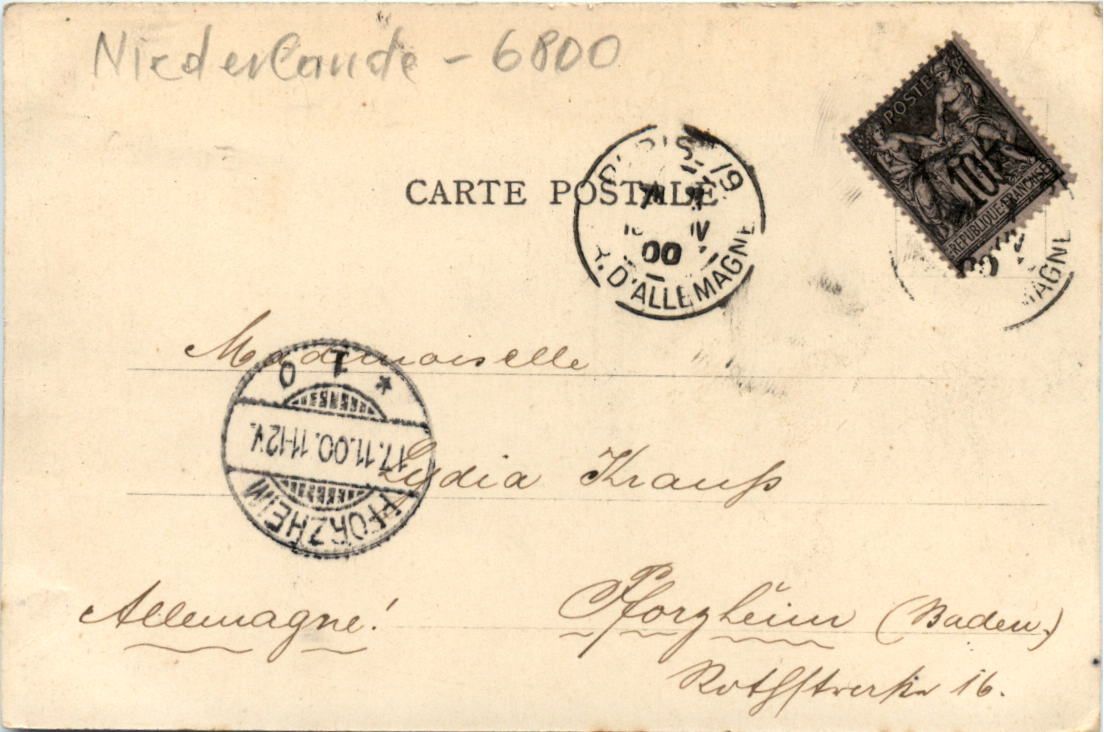 Niederlande - 6800
CARTE POSTALE
POSTES
10
REPUBLIQUE FRANÇAISE
PARIS 19
00
R. D'ALLEMAGNE
00
MAGNE
Mademoiselle
* 1 0
17.11.00.11-12V.
PFORZHEIM
Lydia Krauß
Allemagne!
Pforzheim (Baden)
16.